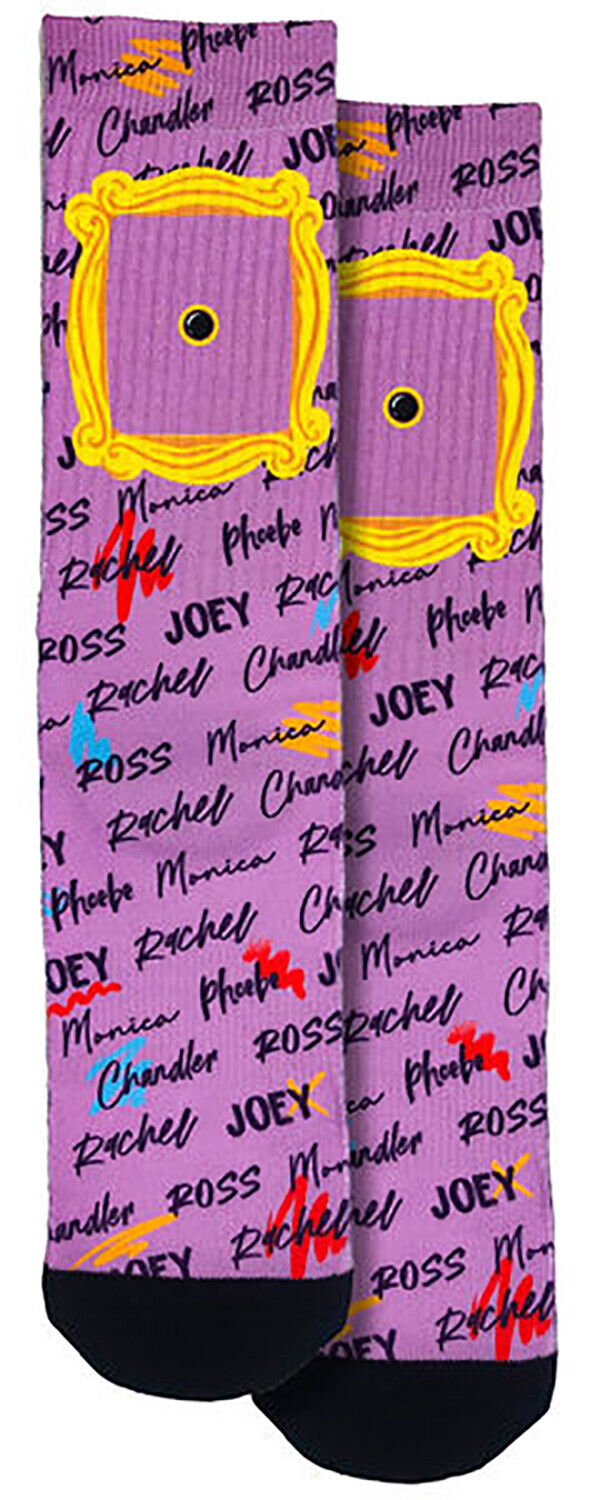 Monica Phoebe
Chandler ROSS
Rachel JOEY
Phoebe
Chandler ROSS
Rachel JOEY
Monica
Rachel Phoebe
ROSS JOEY
Monica
Rachel Chandler
Phoebe
ROSS Monica
JOEY
Rachel
Chandler
Phoebe Monica
Monica
JOEY Rachel
Rachel
Monica Phoebe
Monica
Chandler ROSS
Rachel
Rachel JOEY
Phoebe
Chandler ROSS
ROSS
JOEY Rachel
JOEY
ROSS
JOEY Rachel